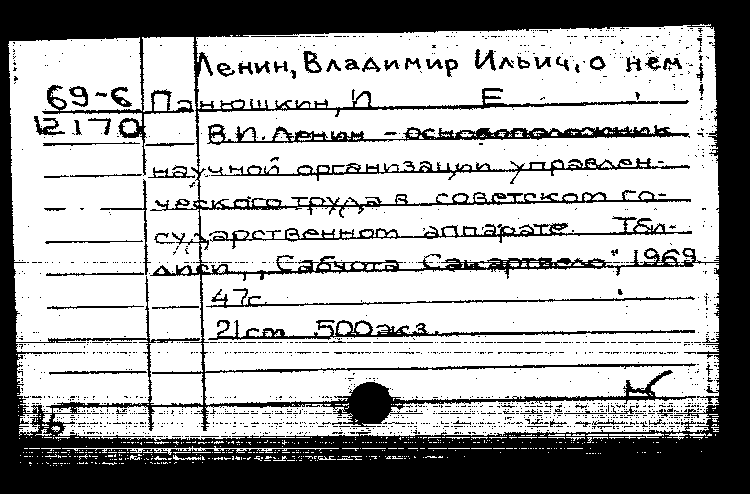 Ленин, Владимир Ильич, о нем
69-6 Панюшкин, И Е
12170 В.И. Ленин - основоположник
научной организации управлен-
ческого труда в советском го-
сударственном аппарате. Тби-
лиси, „Сабчота Сакартвело", 1969
47с
21см 500экз.
16